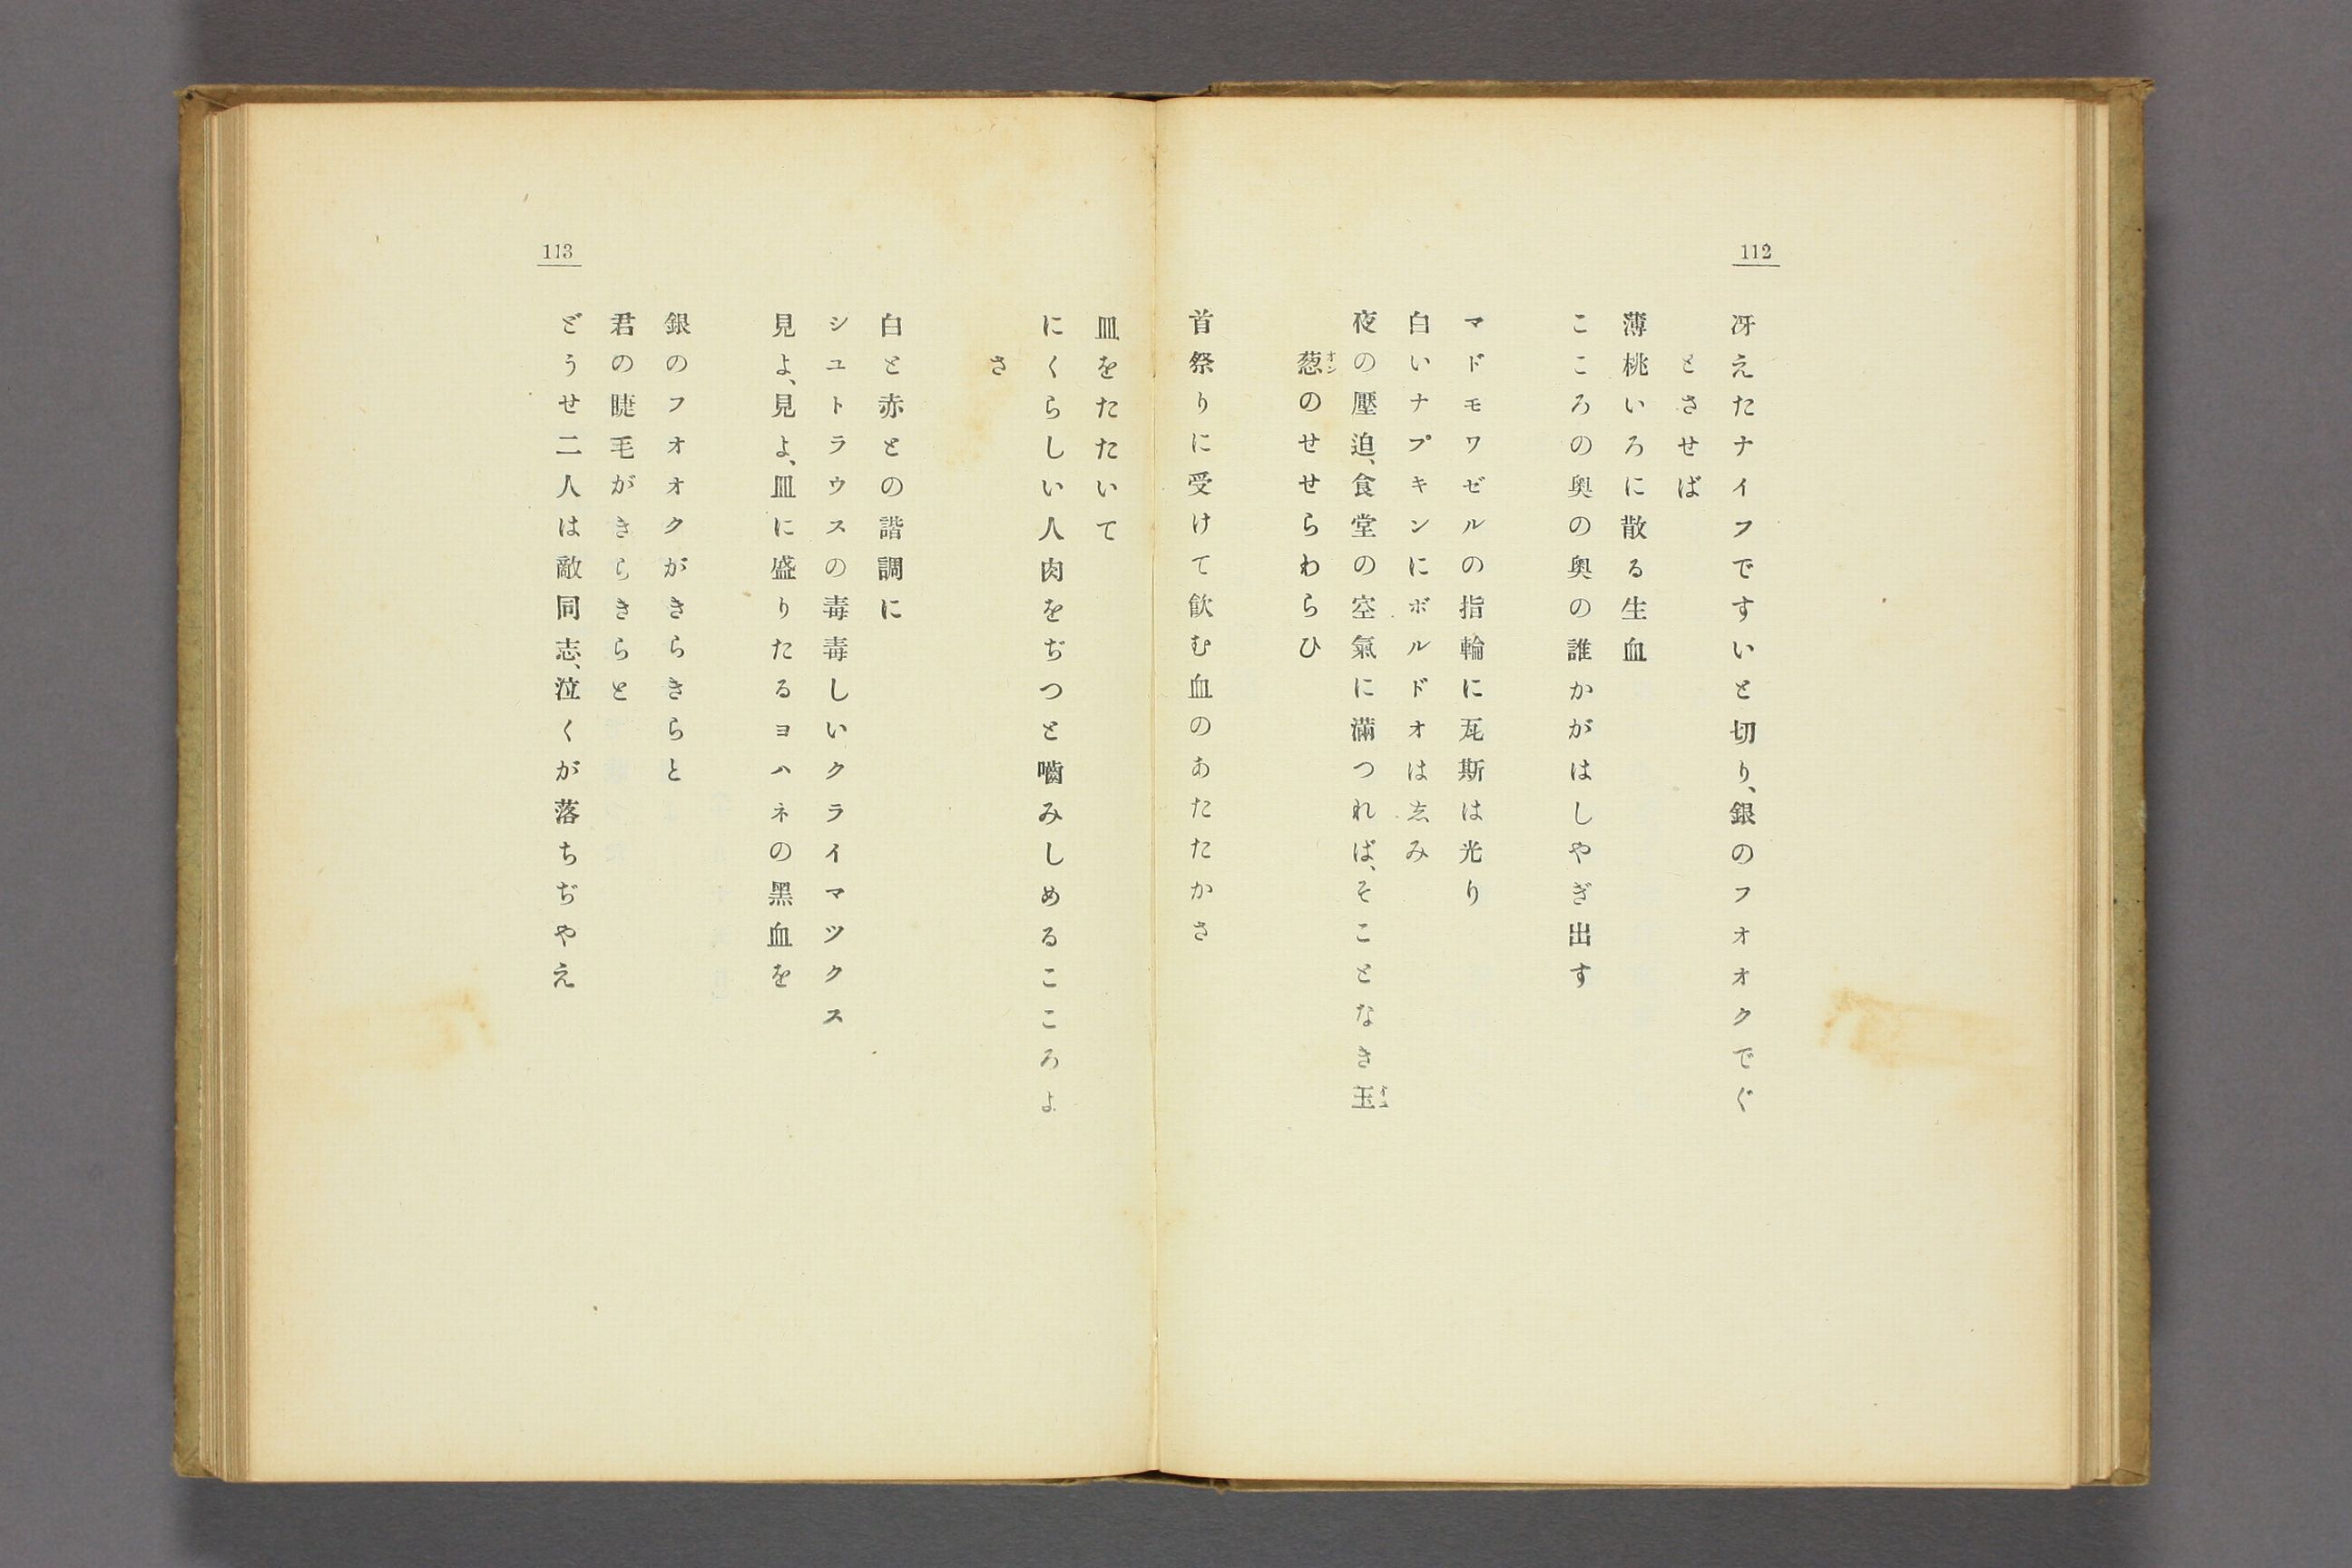 112
冴えたナイフですいと切り、銀のフオオクでぐ
とさせば
薄桃いろに散る生血
こころの奥の奥の誰かがはしやぎ出す
マドモワゼルの指輪に瓦斯は光り
白いナプキンにボルドオは志み
夜の壓迫、食堂の空氣に滿つれば、そことなき玉
葱のせせらわらひ
首祭りに受けて飮む血のあたたかさ
113
皿をたたいて
にくらしい人肉をぢつと嚙みしめるこころよ
さ
白と赤との諧調に
シユトラウスの毒毒しいクライマツクス
見よ、見よ、皿に盛りたるヨハネの黑血を
銀のフオオクがきらきらと
君の睫毛がきらきらと
どうせ二人は敵同志、泣くが落ちぢやえ